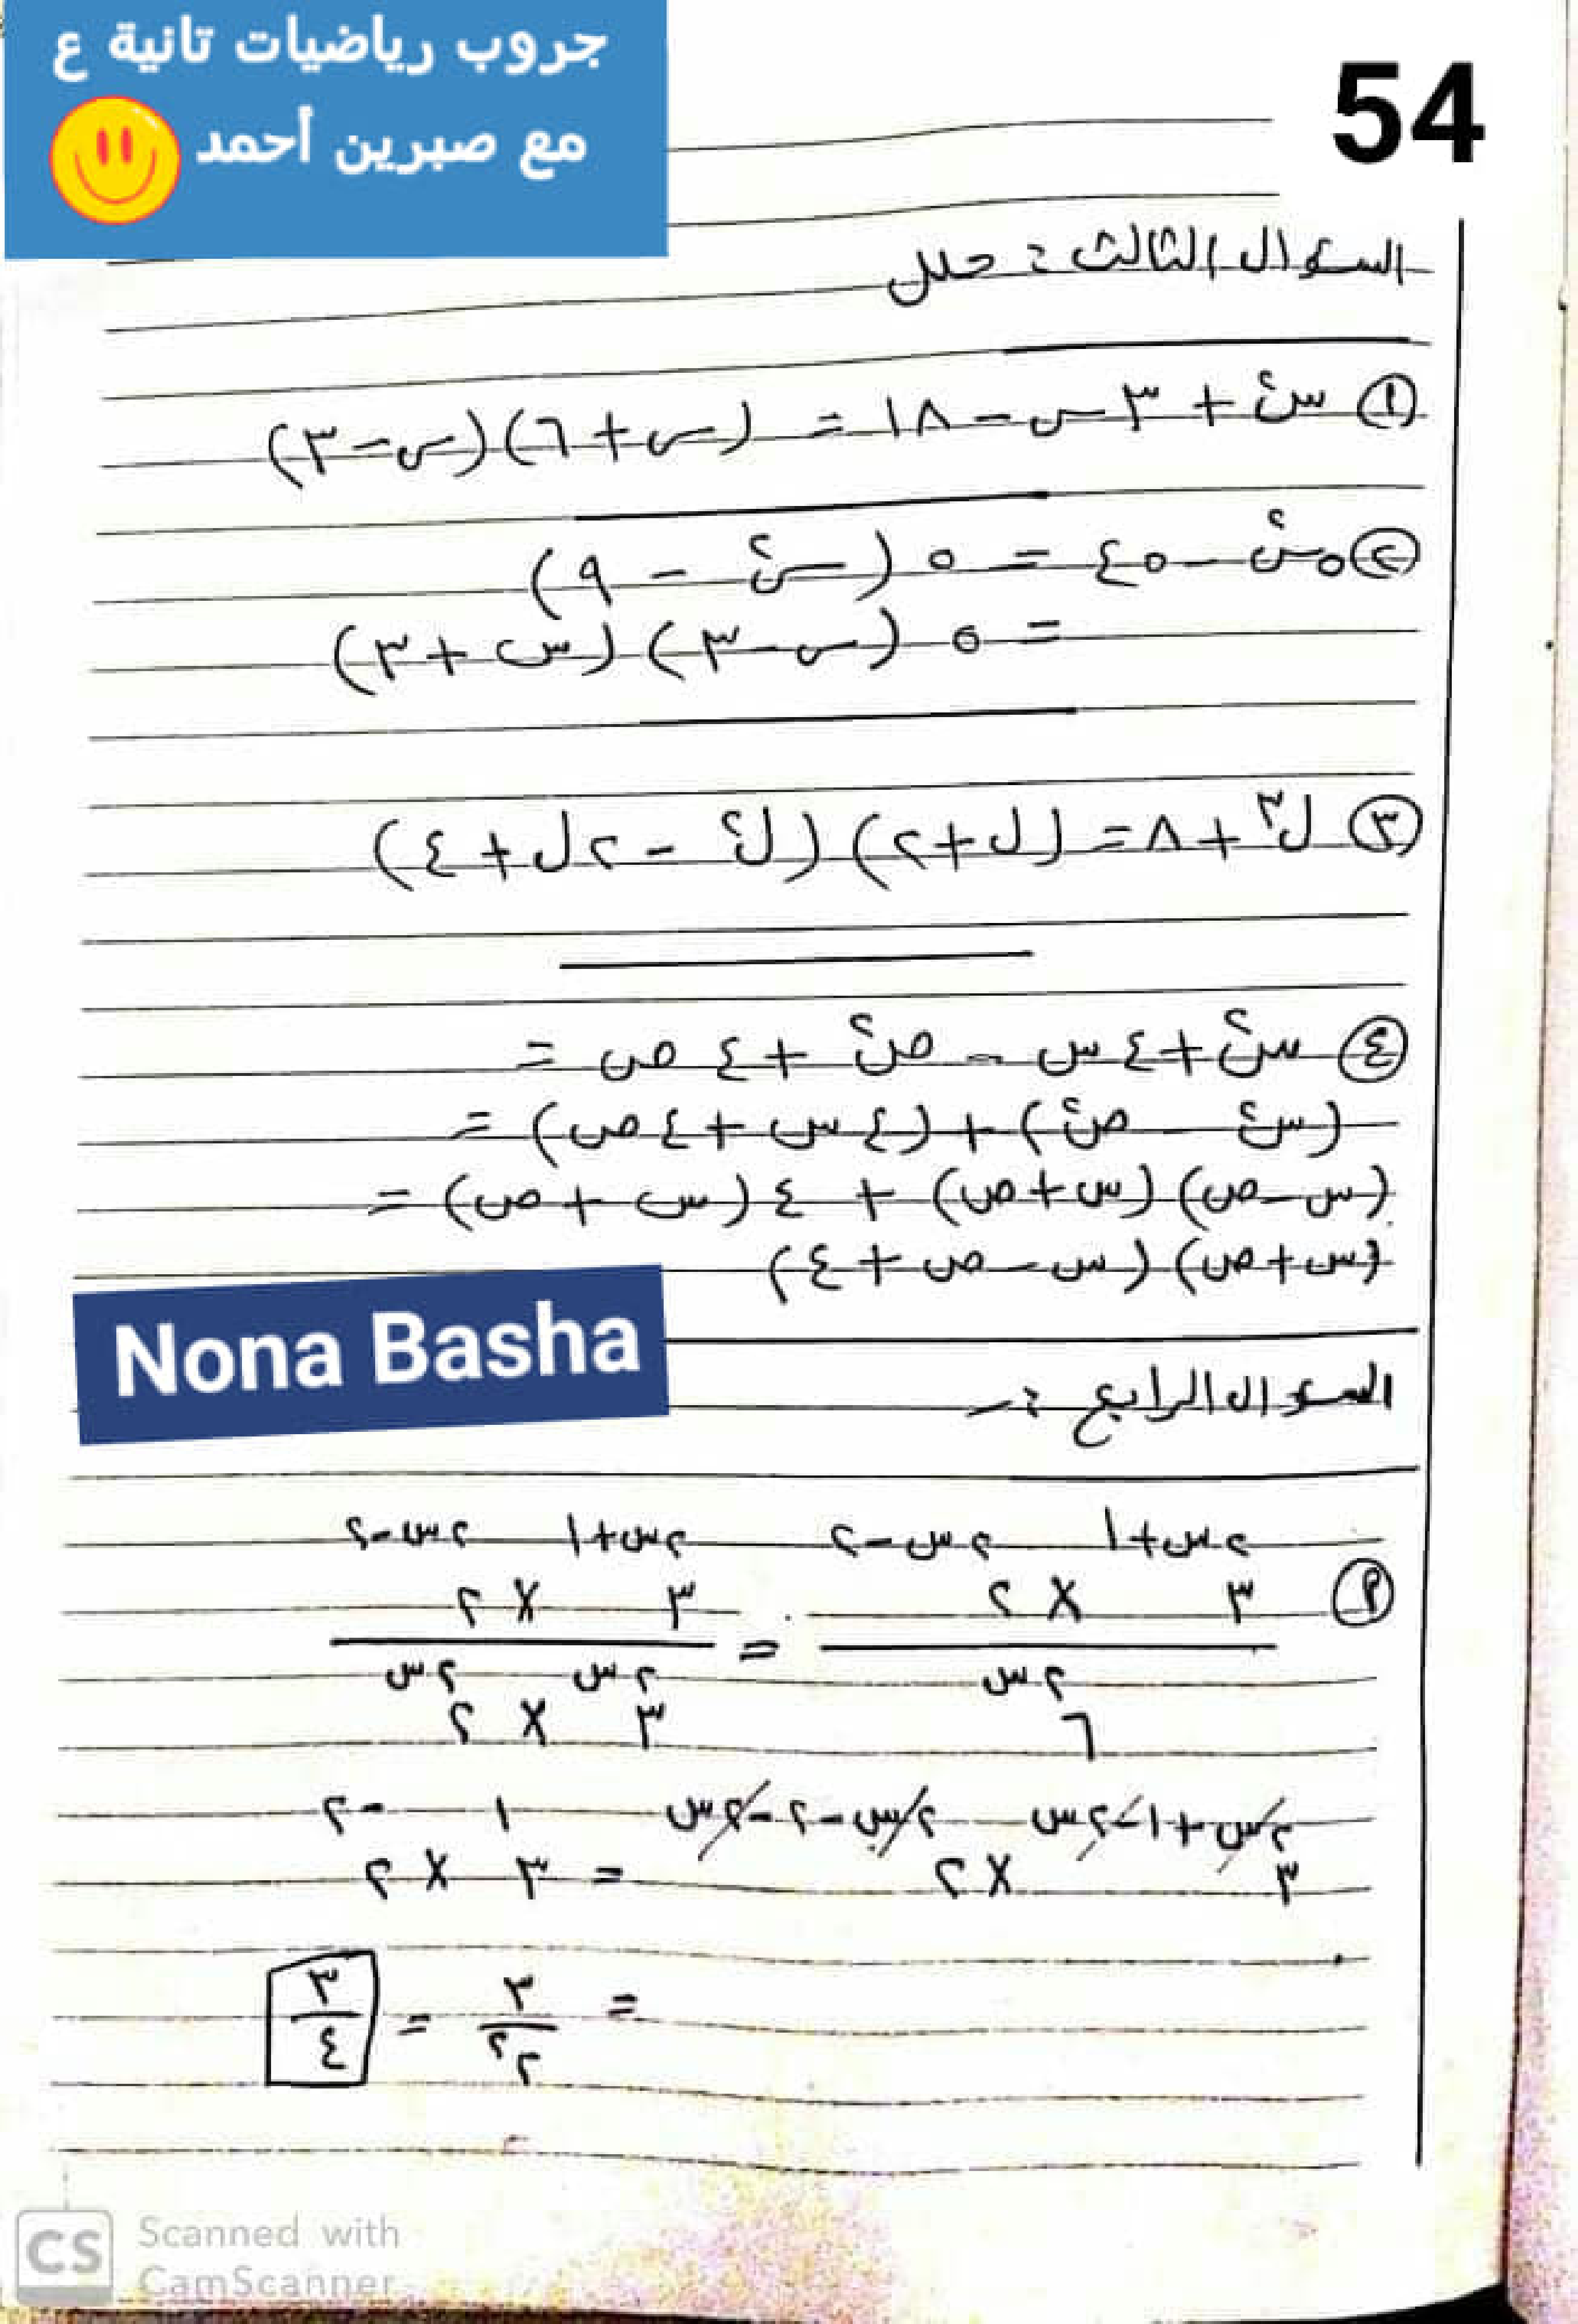 جروب رياضيات تانية ع
مع صبرين أحمد
54
السؤال الثالث : حلل
١ س٢ + ٣س - ١٨ = (س + ٦)(س - ٣)
٢ ٥س٢ - ٤٥ = ٥ (س٢ - ٩)
= ٥ (س - ٣) (س + ٣)
٣ ل٣ + ٨ = (ل + ٢) (ل٢ - ٢ل + ٤)
٤ س٢ + ٤س - ص٢ + ٤ص =
(س٢ - ص٢) + (٤س + ٤ص) =
(س - ص) (س + ص) + ٤ (س + ص) =
(س + ص) (س - ص + ٤)
Nona Basha
السؤال الرابع :-
٢س+١ ٢س-٢ ٢س+١ ٢س-٢
٢ ٣ × ٢ = ٣ × ٢
٢س ٢س ٢س
٦ ٣ × ٢
٢س+١-٢س ٢س-٢-٢س ١ -٢
٣ ×٢ = ٣ × ٢
= ٣/٢٢ = ٣/٤
CS Scanned with
CamScanner